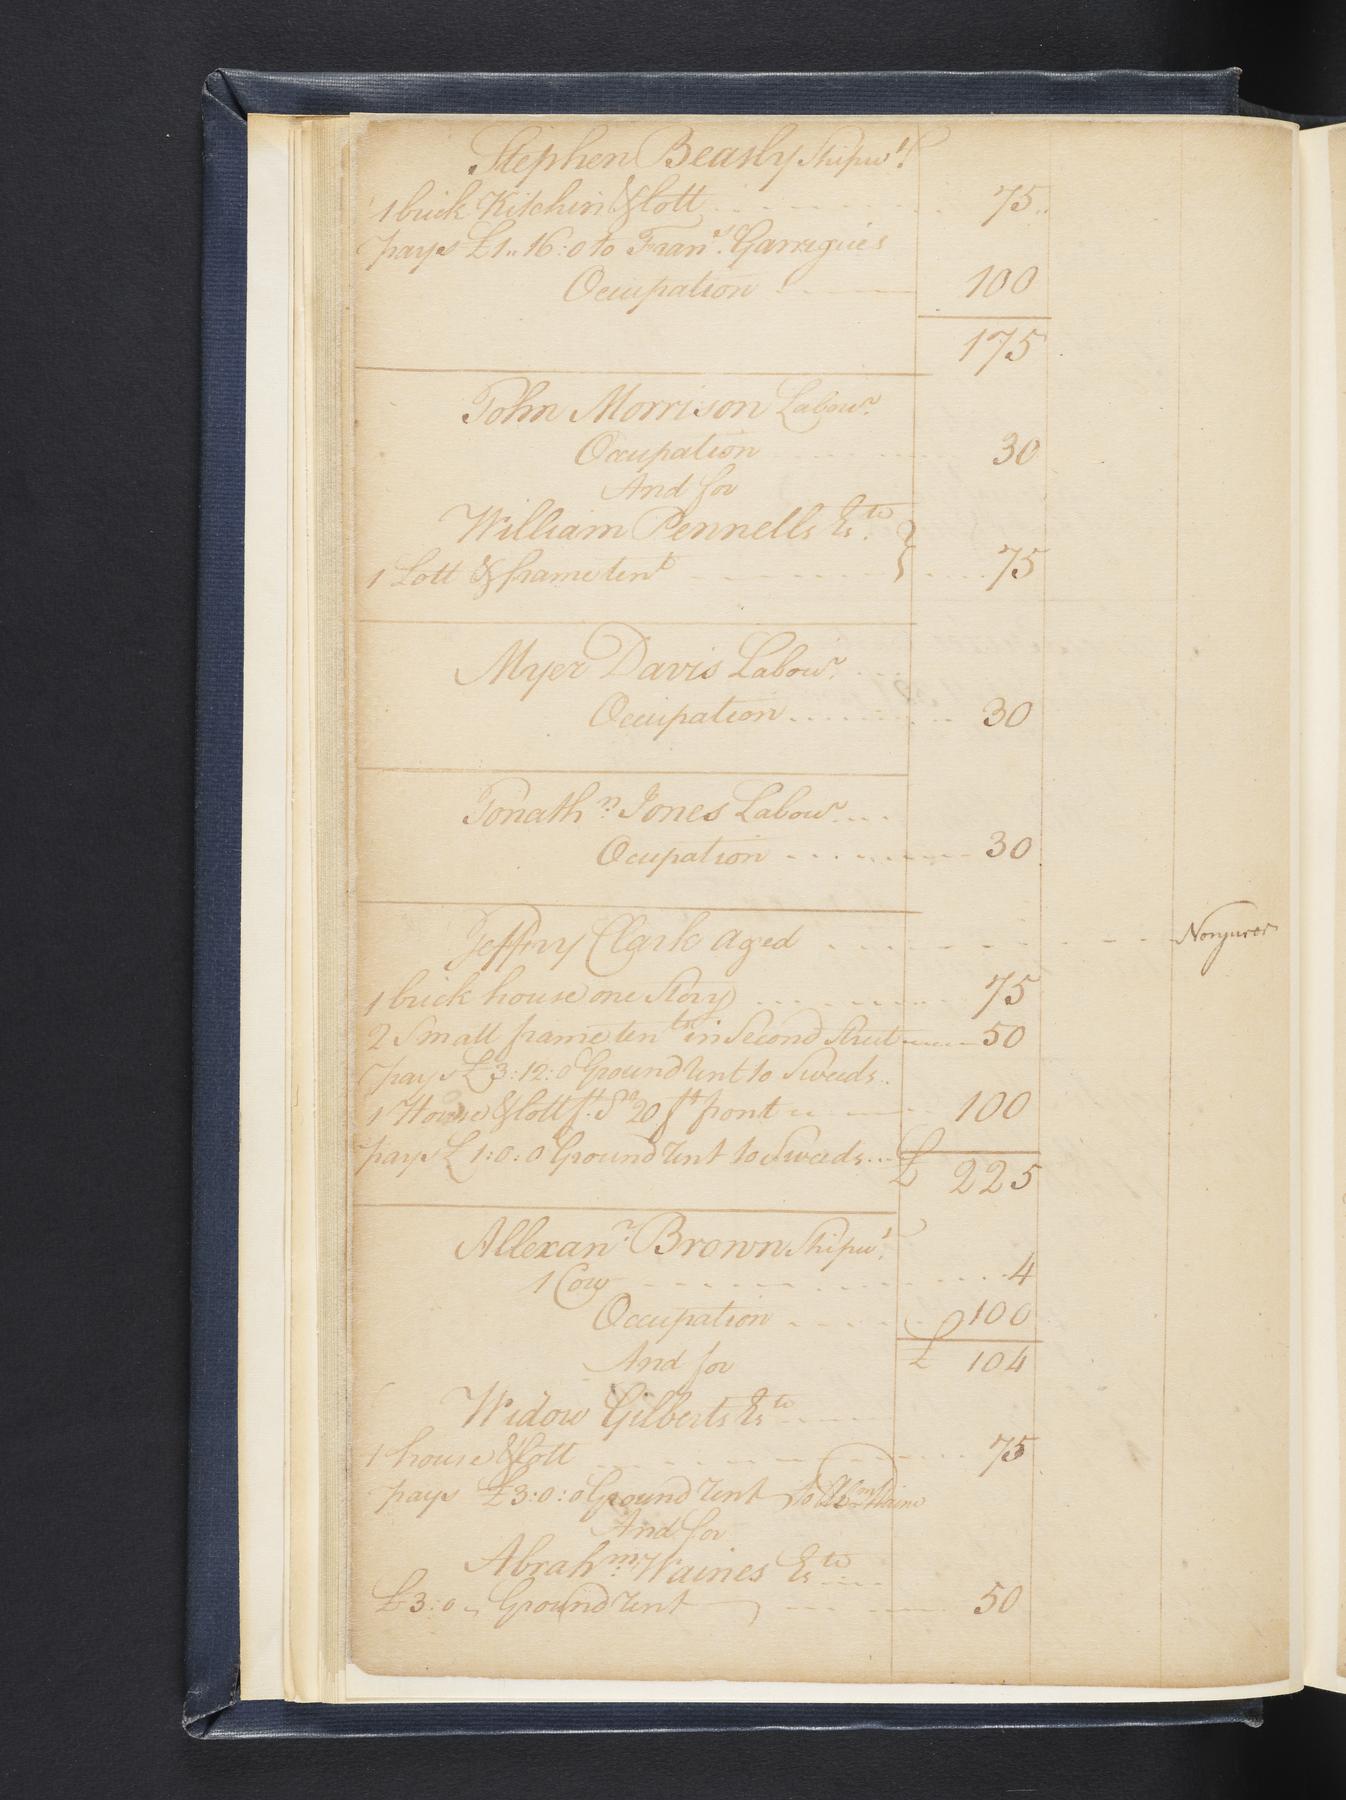 Stephen Beasly Shipwt.
1 brick Kitchin & lott 75
pays £1.. 16: 0 to Frans. Garrigues
Occupation 100
175
John Morrison Labour.
Occupation 30
And for
William Pennells Este.
1 Lott & frame tent 75
Myer Davis Labour.
Occupation 30
Jonathn. Jones Labour
Ocupation 30
Jeffry Clark aged Nonjuror
1 brick house one Story 75
2 Small frame tents in Second Street 50
pays £3:12:0 Ground rent to Sweeds
1 House & lott 20 ft front 100
pays £1:0:0 Ground rent to Sweeds
£ 225
Allexanr. Brown Shipwt.
1 Cow 4
Occupation 100
And for £ 104
Widow Gilberts Este
1 house & lott 75
pays £3:0:0 Ground rent to
And for
Abrahm. Waines Este
£3:0 Ground rent 50